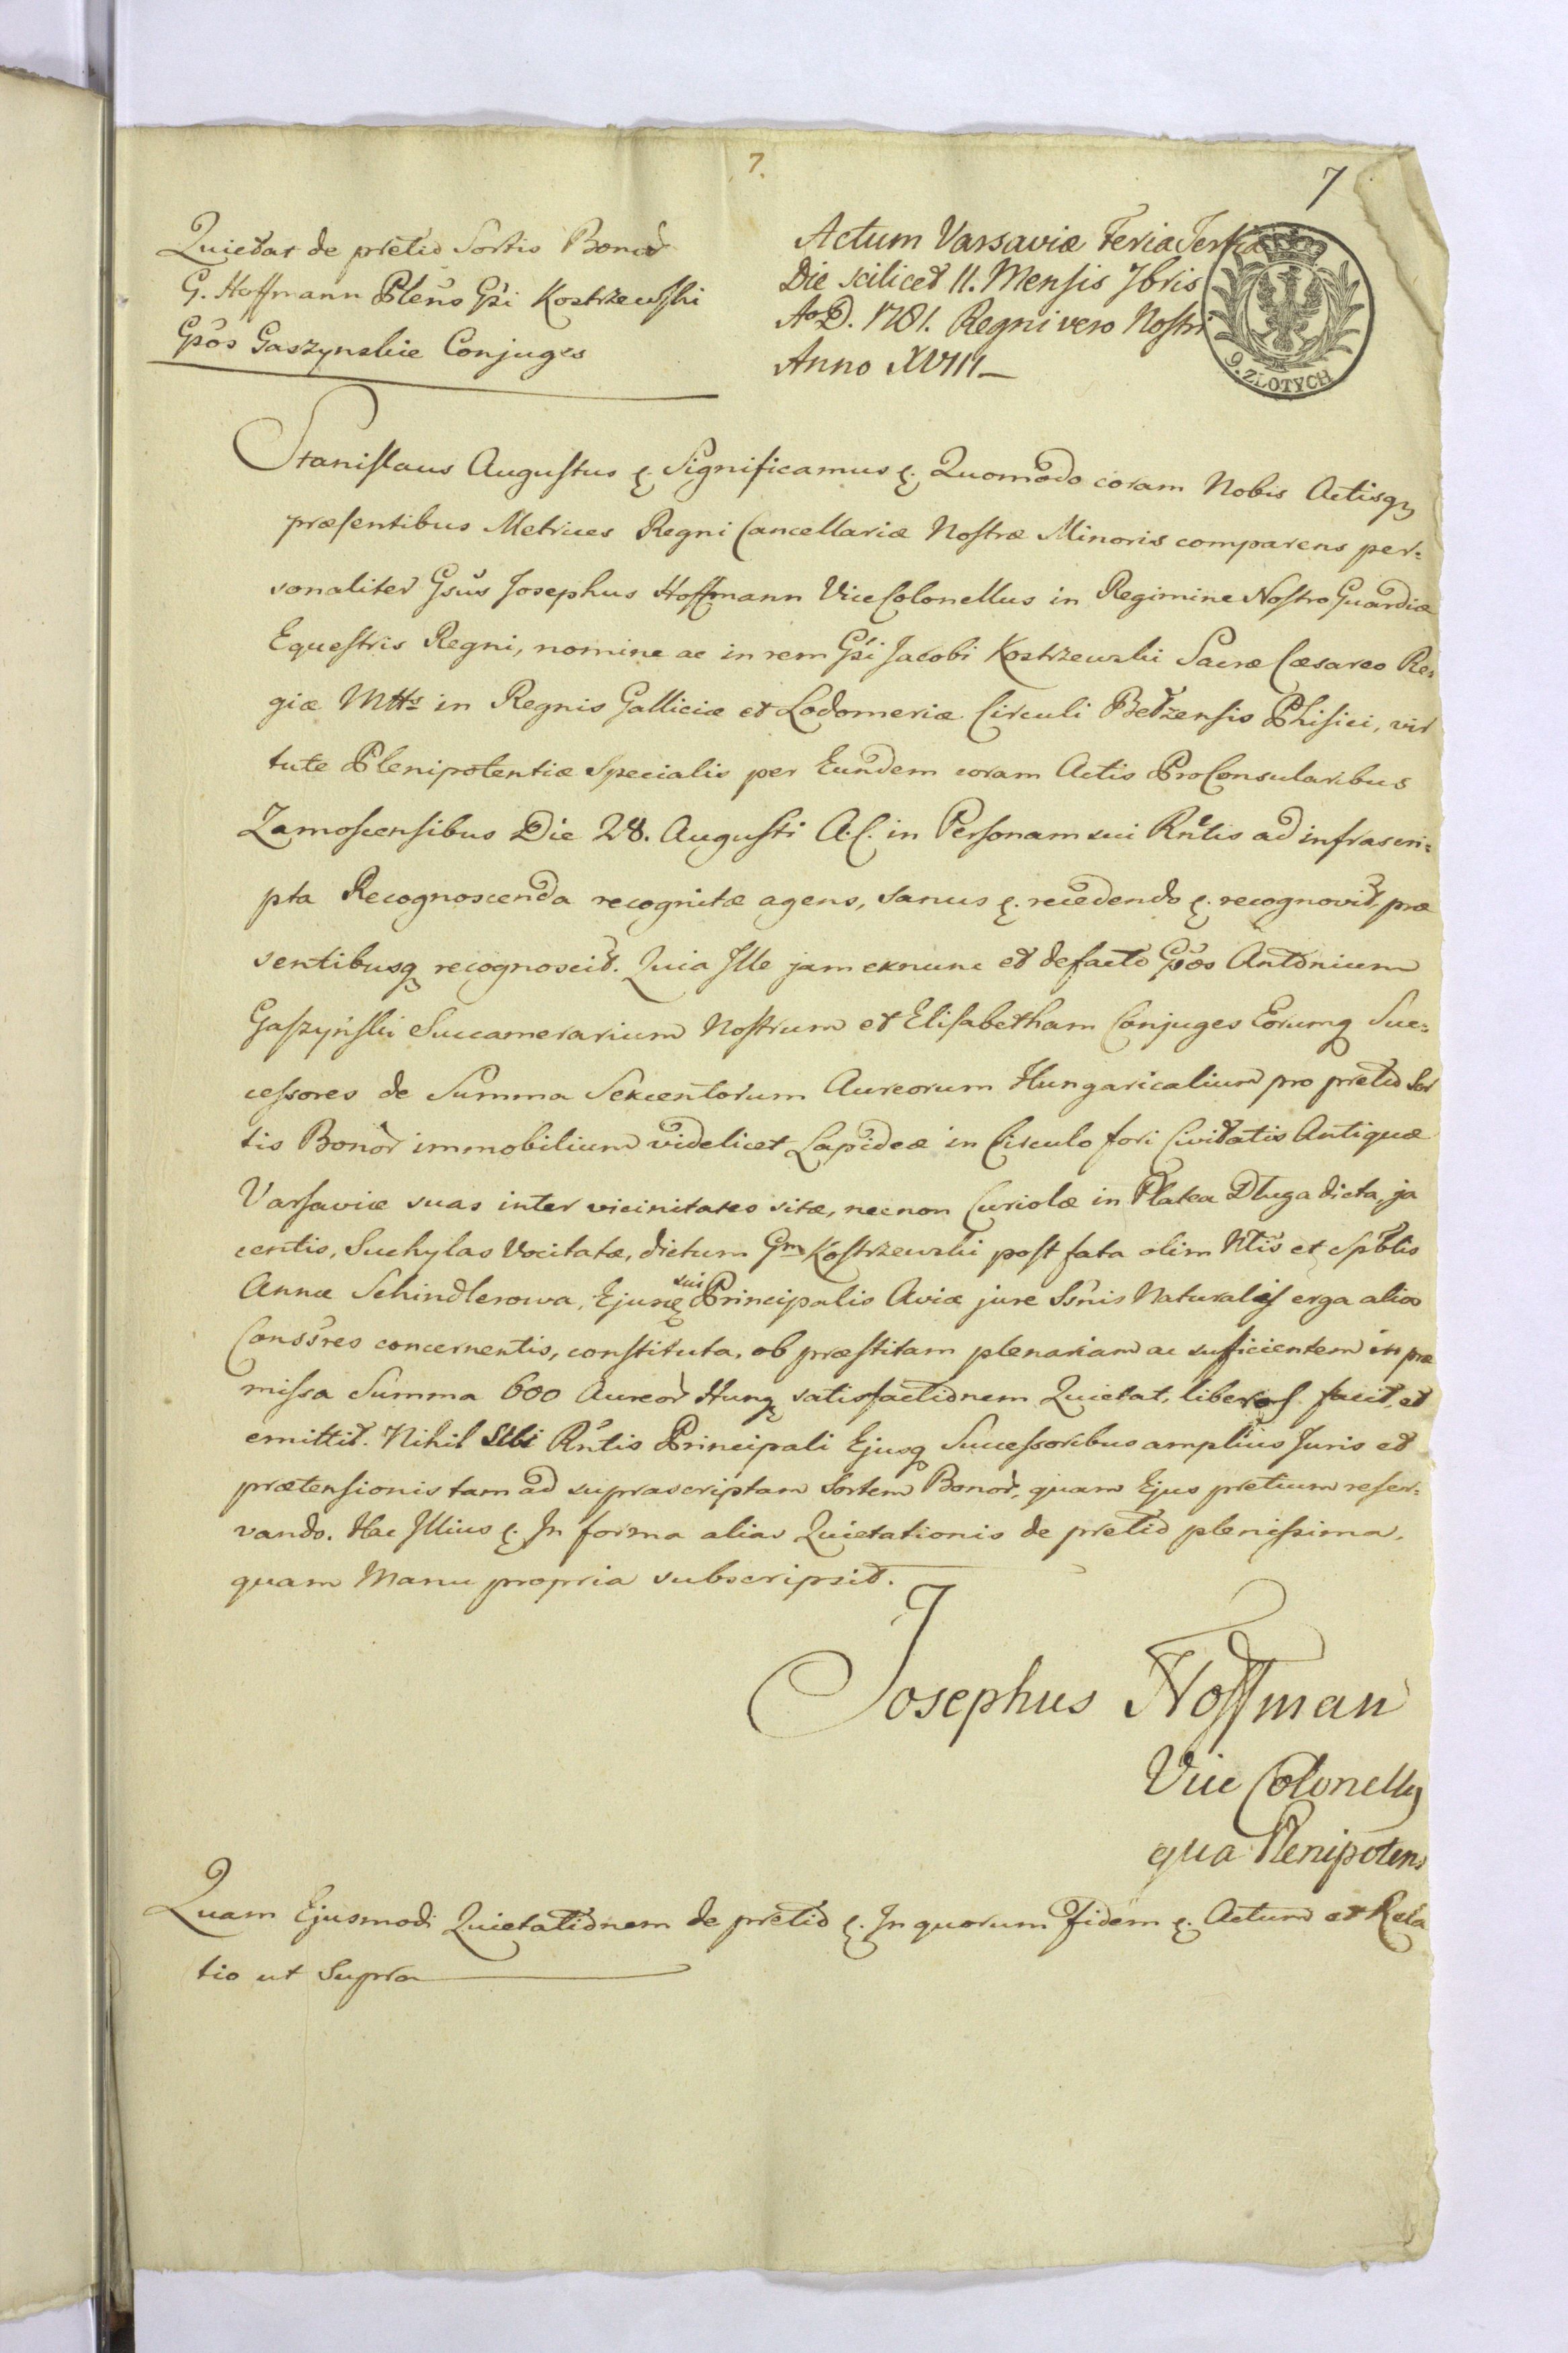 7.
7
Quietat de pretio Sortis Bonor
G. Hoffmann Plenus Gsi Kostrzewski
Gsos Gaszynskie Conjuges
Actum Varsaviæ Feria Tertia
Die scilicet 11. Mensis 7bris
Ao D. 1781. Regni vero Nostri
Anno XVIII
9. ZLOTYCH
Stanislaus Augustus &. Significamus &. Quomodo coram Nobis Actisq
præsentibus Metrices Regni Cancellariæ Nostræ Minoris comparens per=
sonaliter Gsus Josephus Hoffmann ViceColonellus in Regimine Nostro Guardiæ
Equestris Regni, nomine ac in rem Gsi Jacobi Kostrzewski Sacræ Cæsareo Re=
giæ Mtts in Regnis Galliciæ et Lodomeriæ Circuli Betzensis Phisici, vir
tute Plenipotentiæ Specialis per Eundem coram Actis ProConsularibus
Zamoscensibus Die 28. Augusti A.C. in Personam sui Rntis ad infrascri=
pta Recognoscenda recognitæ agens, sanus &. recedendo &. recognovit, præ
sentibusq recognoscit. Quia Ille jam exnunc et defacto Gsos Antonium
Gaszyński Succamerarium Nostrum et Elisabetham Conjuges Eorumq Suc=
cessores de Summa Sexcentorum Aureorum Hungaricalium pro pretio Sor
tis Bonor immobilium videlicet Lapideæ in Circulo fori Civitatis Antiquæ
Varsaviæ suas inter vicinitates sitæ, necnon Curiolæ in Platea Dluga dicta, ja
centis, Suchylas Vocitatæ, dictum Gm Kostrzewski post fata olim Ntis et Spbtis
Annæ Schindlerowa, Ejusq sui Principalis Aviæ jure Ssnis Naturalis erga alios
Conssres concernentis, constituta, ob præstitam plenariam ac sufficientem in præ
missa Summa 600 Aureor Hung satisfactionem Quietat, liberos facit, et
emittit. Nihil Sibi Rntis Principali Ejusq Successoribus amplius Juris et
prætensionis tam ad suprascriptam Sortem Bonor, quam Ejus pretium reser=
vando. Hac Illius &. In forma alias Quietationis de pretio plenissima,
quam Manu propria subscripsit.
Josephus Hoffman
Vice Colonellus
qua Plenipotens
Quam Ejusmodi Quietationem de pretio &. In quorum Fidem &. Actum et Rela
tio ut Supra